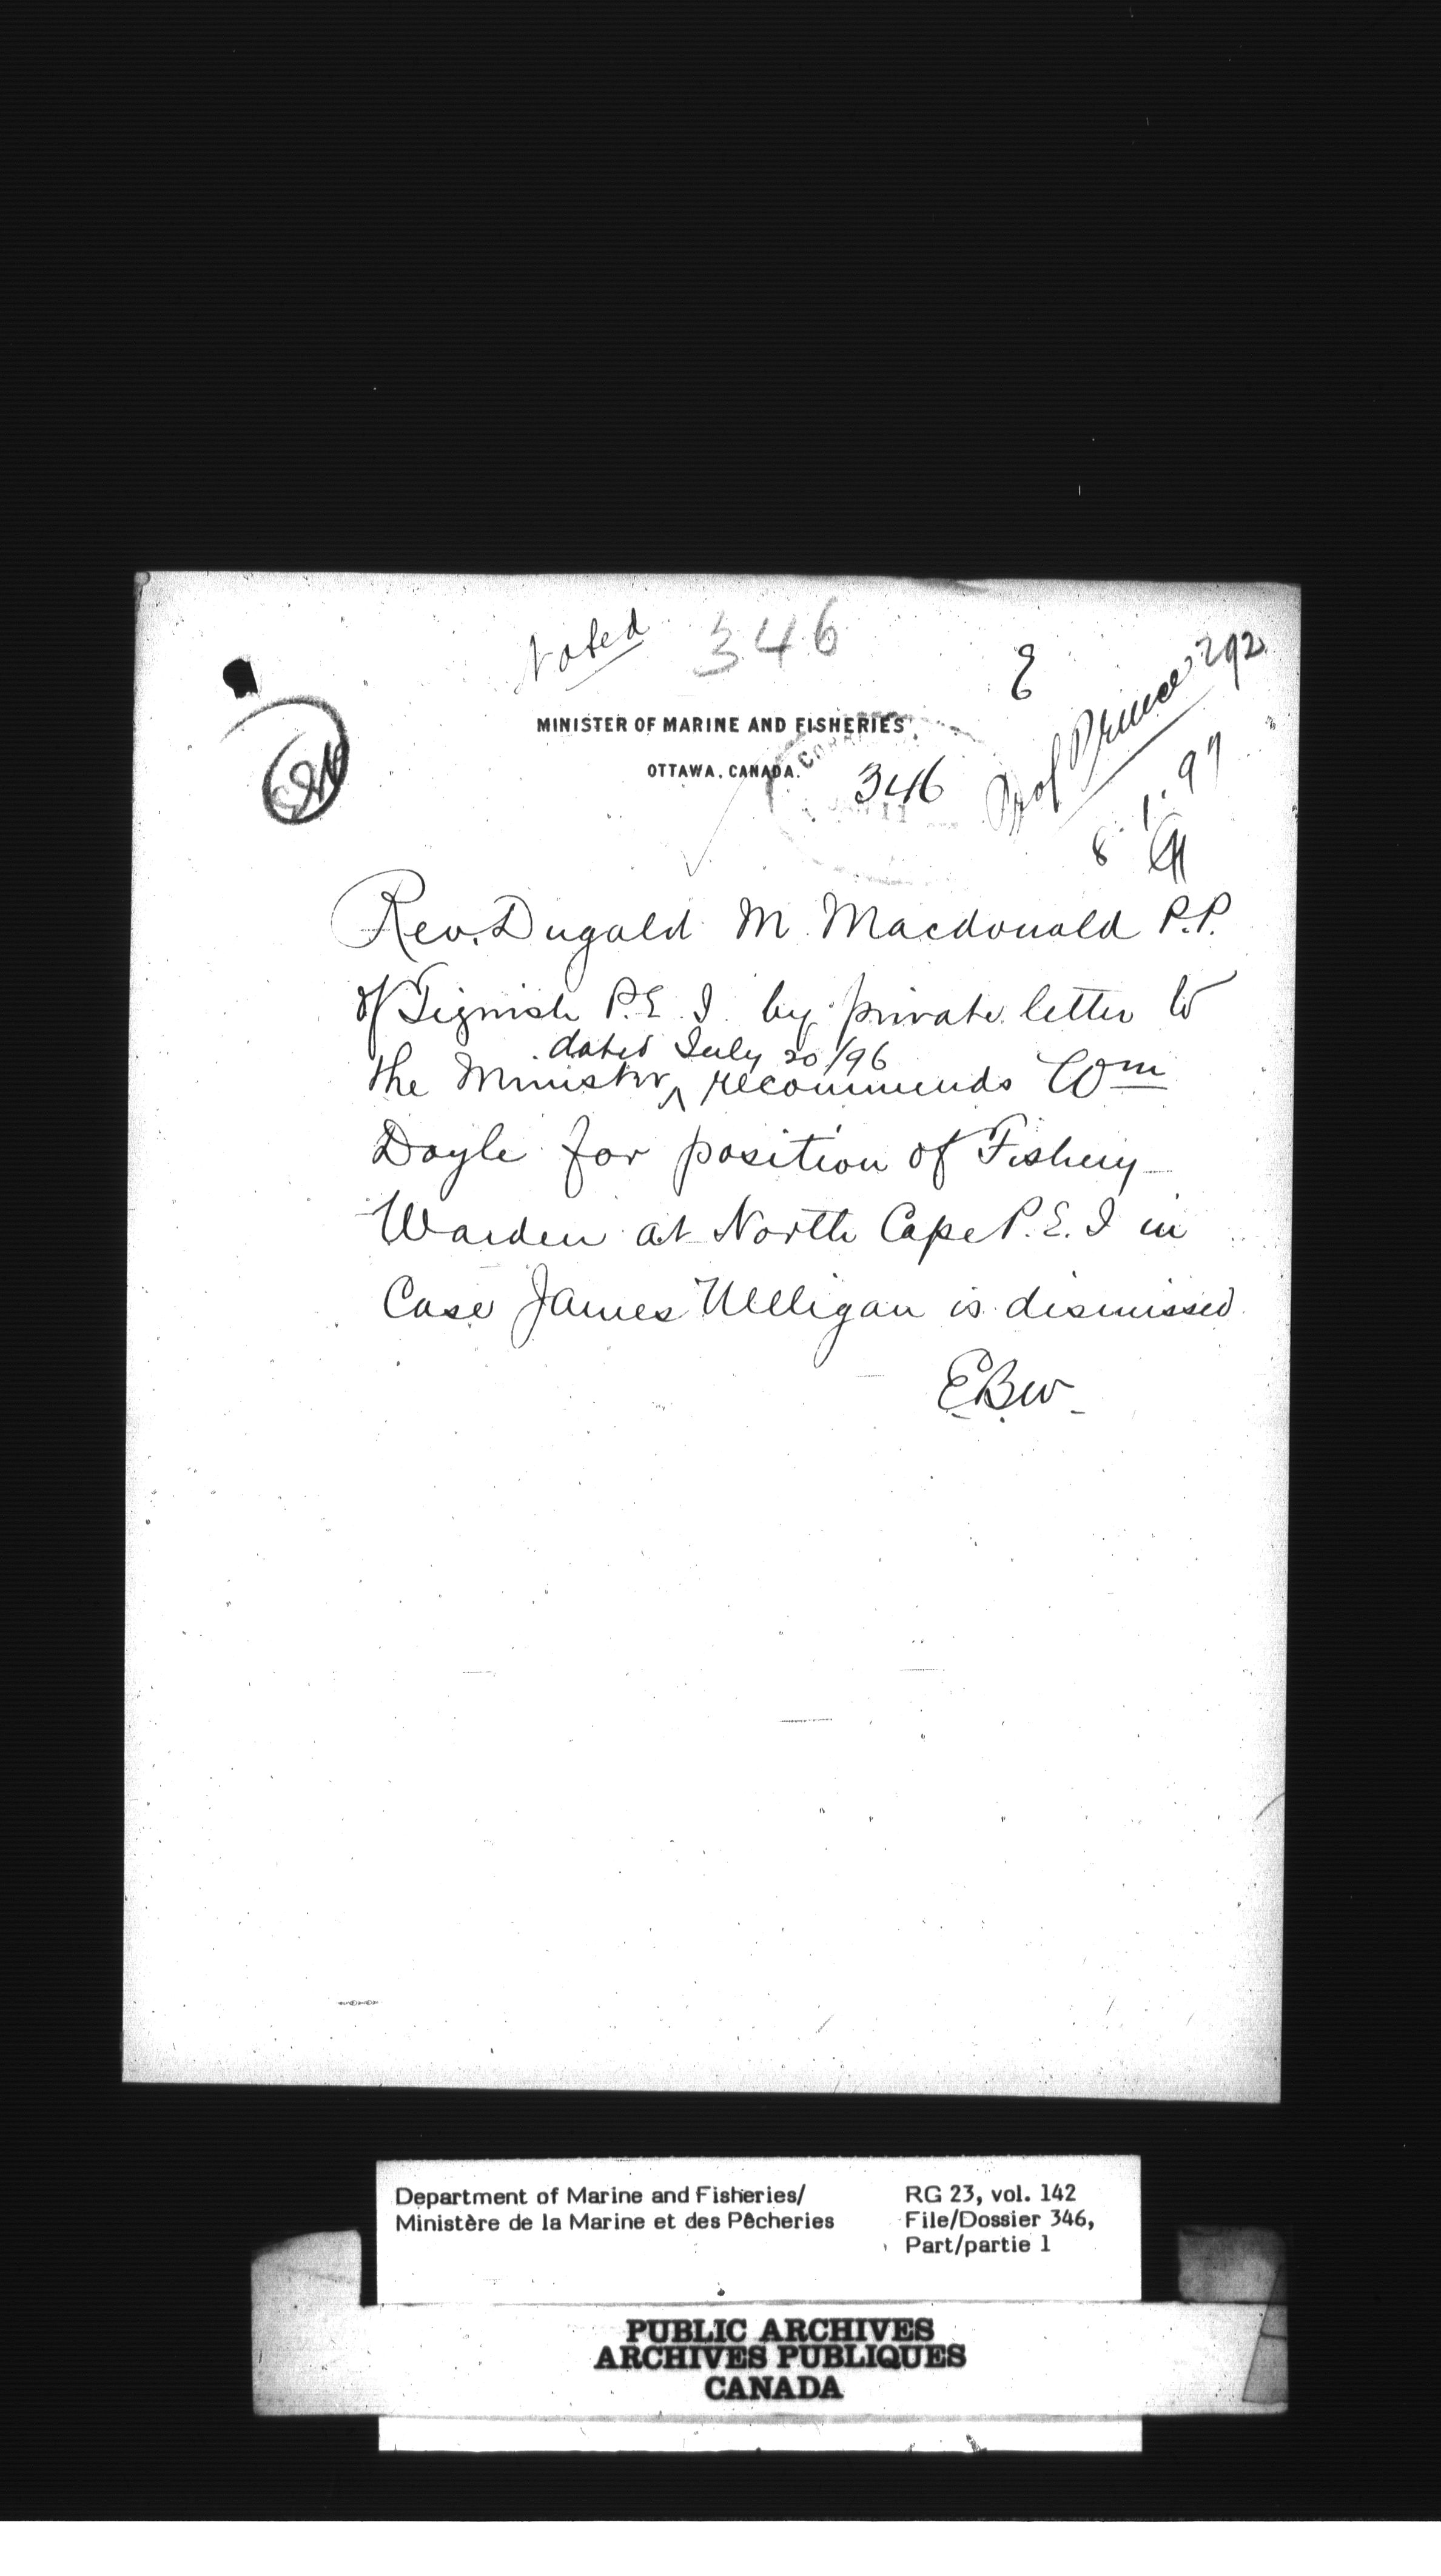 Noted 346
E
Prof Prince 292
8.1.97
MINISTER OF MARINE AND FISHERIES
OTTAWA, CANADA.
346
Rev. Dugald M Macdonald P.P.
of Tignish P.E.I by private letter to
dated July 20/96
the Minister ^ recommends Wm
Doyle for position of Fishery
Warden at North Cape P.E.I in
Case James is dismissed
E.B.W.
Department of Marine and Fisheries/
Ministère de la Marine et des Pêcheries
RG 23, vol. 142
File/Dossier 346,
Part/partie 1
PUBLIC ARCHIVES
ARCHIVES PUBLIQUES
CANADA